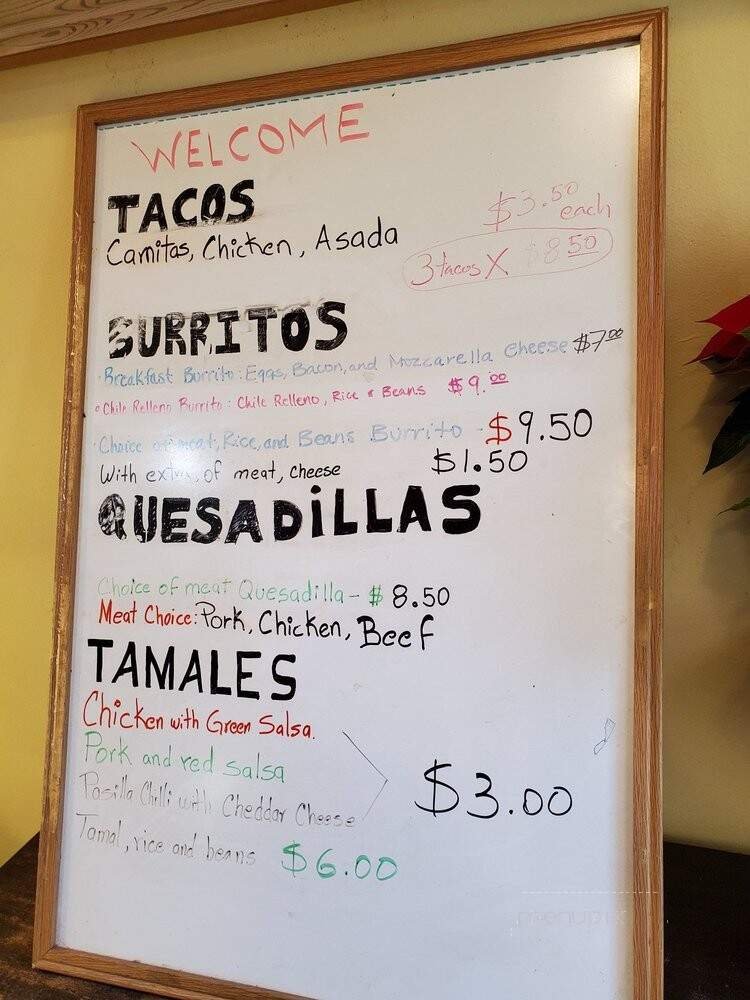 WELCOME
TACOS
$3.50 each
Carnitas, Chicken, Asada
3 tacos X $8.50
BURRITOS
Breakfast Burrito: Eggs, Bacon, and Mozzarella cheese $7.00
Chile Relleno Burrito: Chile Relleno, Rice & Beans $9.00
Choice of meat, Rice, and Beans Burrito - $9.50
With extra of meat, cheese $1.50
QUESADiLLAS
Choice of meat Quesadilla - $8.50
Meat Choice: Pork, Chicken, Beef
TAMALES
Chicken with Green Salsa.
Pork and red salsa
Pasilla Chilli with Cheddar Cheese
$3.00
Tamal, rice and beans $6.00